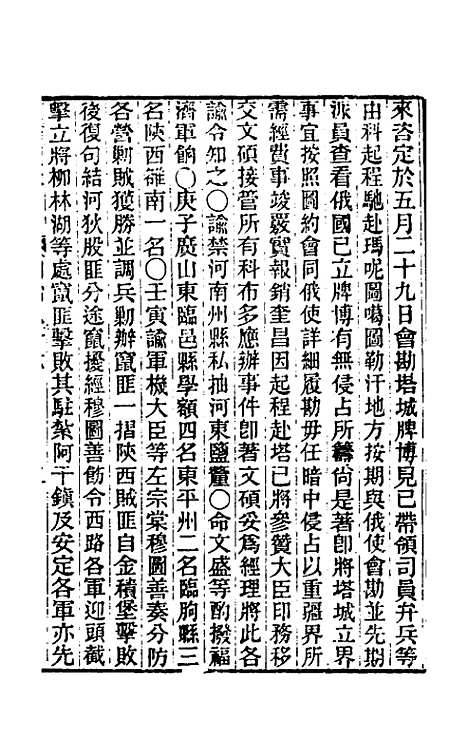 來咨定於五月二十九日會勘塔城牌博見已帶領司員弁兵等
由科起程馳赴瑪呢圖噶圖勒汗地方按期與俄使會勘並先期
派員查看俄國已立牌博有無侵占所籌尙是著卽將塔城立界
事宜按照圖約會同俄使詳細履勘毋任暗中侵占以重疆界所
需經費事竣覈實報銷奎昌因起程赴塔已將參贊大臣印務移
交文碩接管所有科布多應辦事件卽著文碩妥爲經理將此各
諭令知之○諭禁河南州縣私抽河東鹽釐○命文盛等酌撥福
濟軍餉○庚子廣山東臨邑縣學額四名東平州二名臨朐縣三
名陝西雒南一名○壬寅諭軍機大臣等左宗棠穆圖善奏分防
各營勦賊獲勝並調兵勦辦竄匪一摺陝西賊匪自金積堡擊敗
後復句結河狄股匪分途竄擾經穆圖善飭令西路各軍迎頭截
擊立將柳林湖等處竄匪擊敗其駐紮阿干鎭及安定各軍亦先